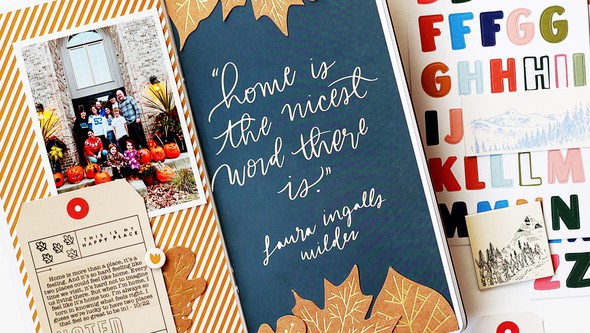 "home is
the nicest
word there
is."
laura ingalls
wilder
THIS IS MY
HAPPY PLACE
Home is more than a place, it's a
feeling. And it's so hard feeling like
two places could feel like home. Every
time we visit, it's hard not to imagine
us living there. But when I'm home, I
feel like it's home too. I'm always so
torn in knowing what feels right. I
guess we're lucky to have two places
that feel so great to be in! - 10/22
NOTED
FFFGG
GHHHII
IJ
KLLLM
MM N
Z